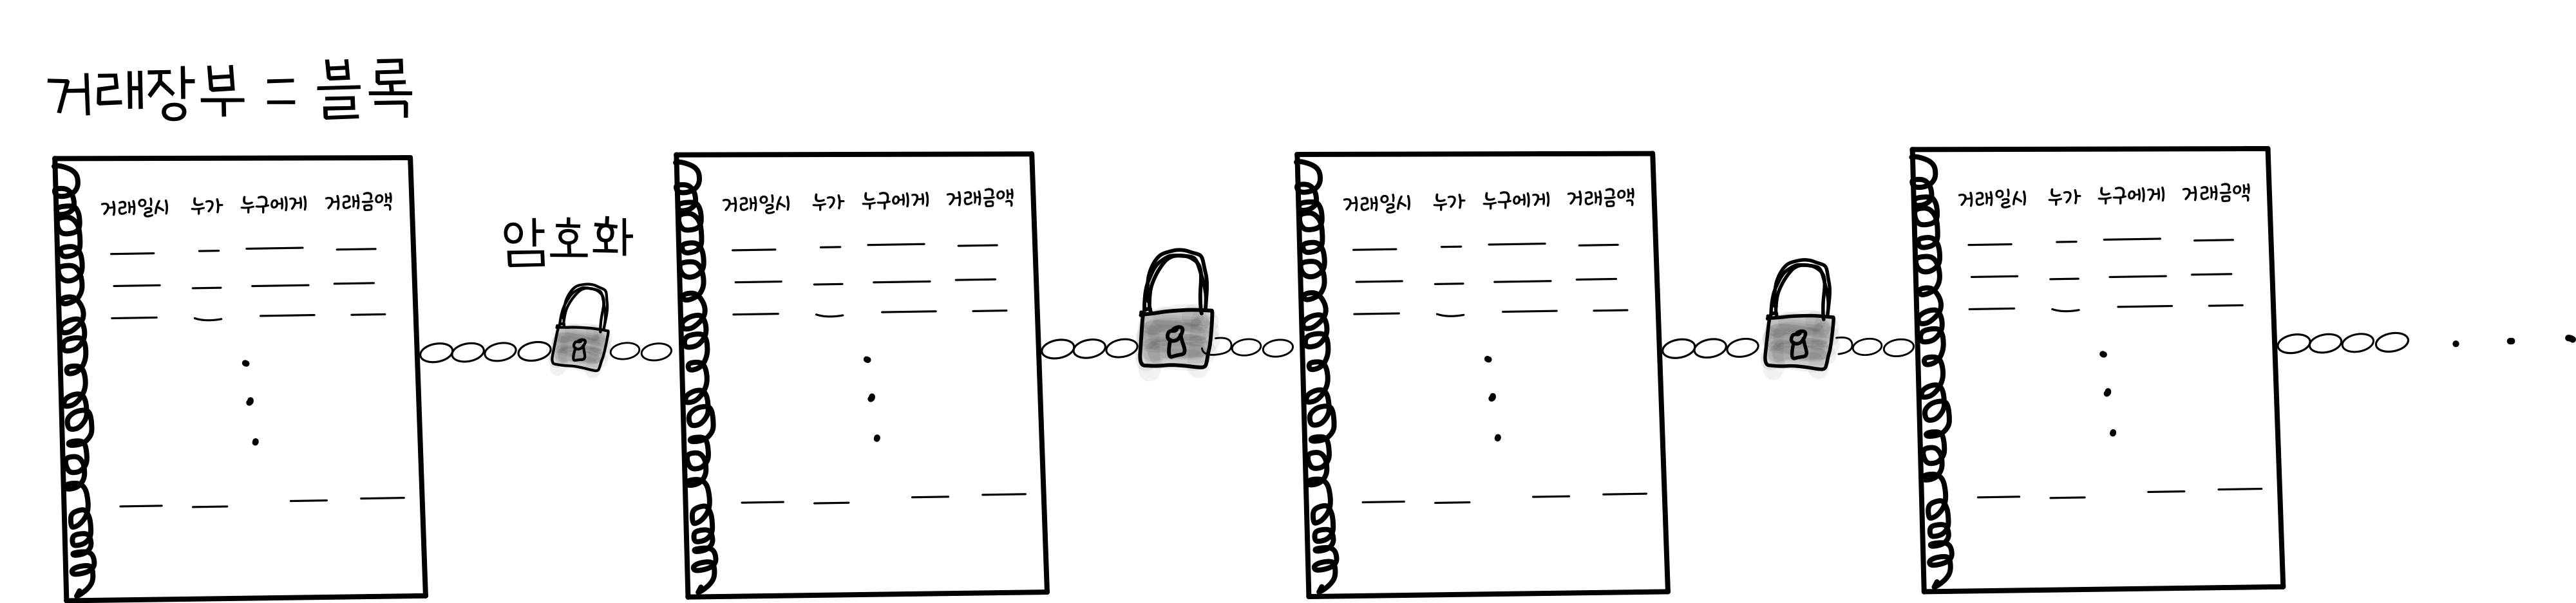 거래장부 = 블록
암호화
거래일시 누가 누구에게 거래금액
거래일시 누가 누구에게 거래금액
거래일시 누가 누구에게 거래금액
거래일시 누가 누구에게 거래금액